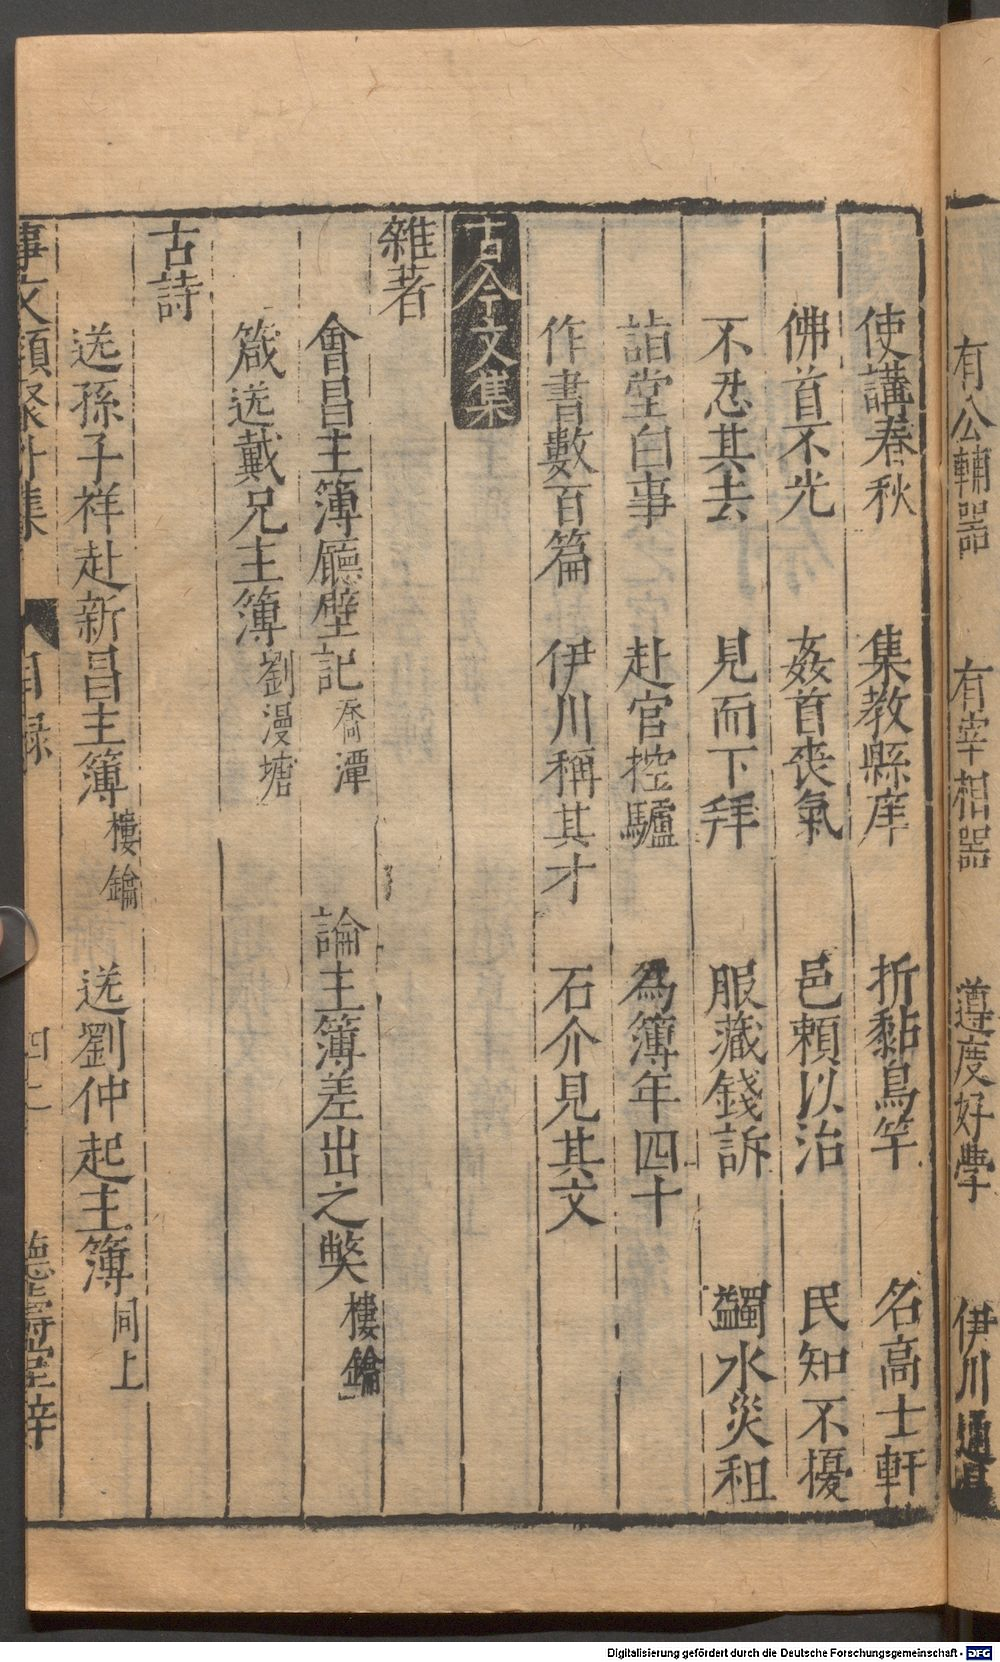 有公輔器　有宰相器　遵度好學　伊川
使講春秋　集教縣庠　折黏鳥竿　名高士軒
佛首不光　姦首喪氣　邑賴以治　民知不擾
不忍其去　見而下拜　服藏錢訴　蠲水災租
詣堂白事　赴官控驢　為簿年四十
作書數百篇　伊川稱其才　石介見其文
古今文集
雜著
會昌主簿廳壁記 喬潭　論主簿差出之獘 樓鑰
箴送戴兄主簿 劉漫塘
古詩
送孫子祥赴新昌主簿 樓鑰　送劉仲起主簿 同上
事文類聚外集　目録　德壽堂梓
Digitalisierung gefördert durch die Deutsche Forschungsgemeinschaft - DFG